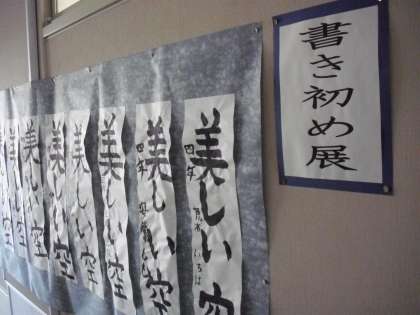 書き初め展
美しい空
四年
美しい空
四年
美しい空
美しい空
美しい空
美しい空
美しい空